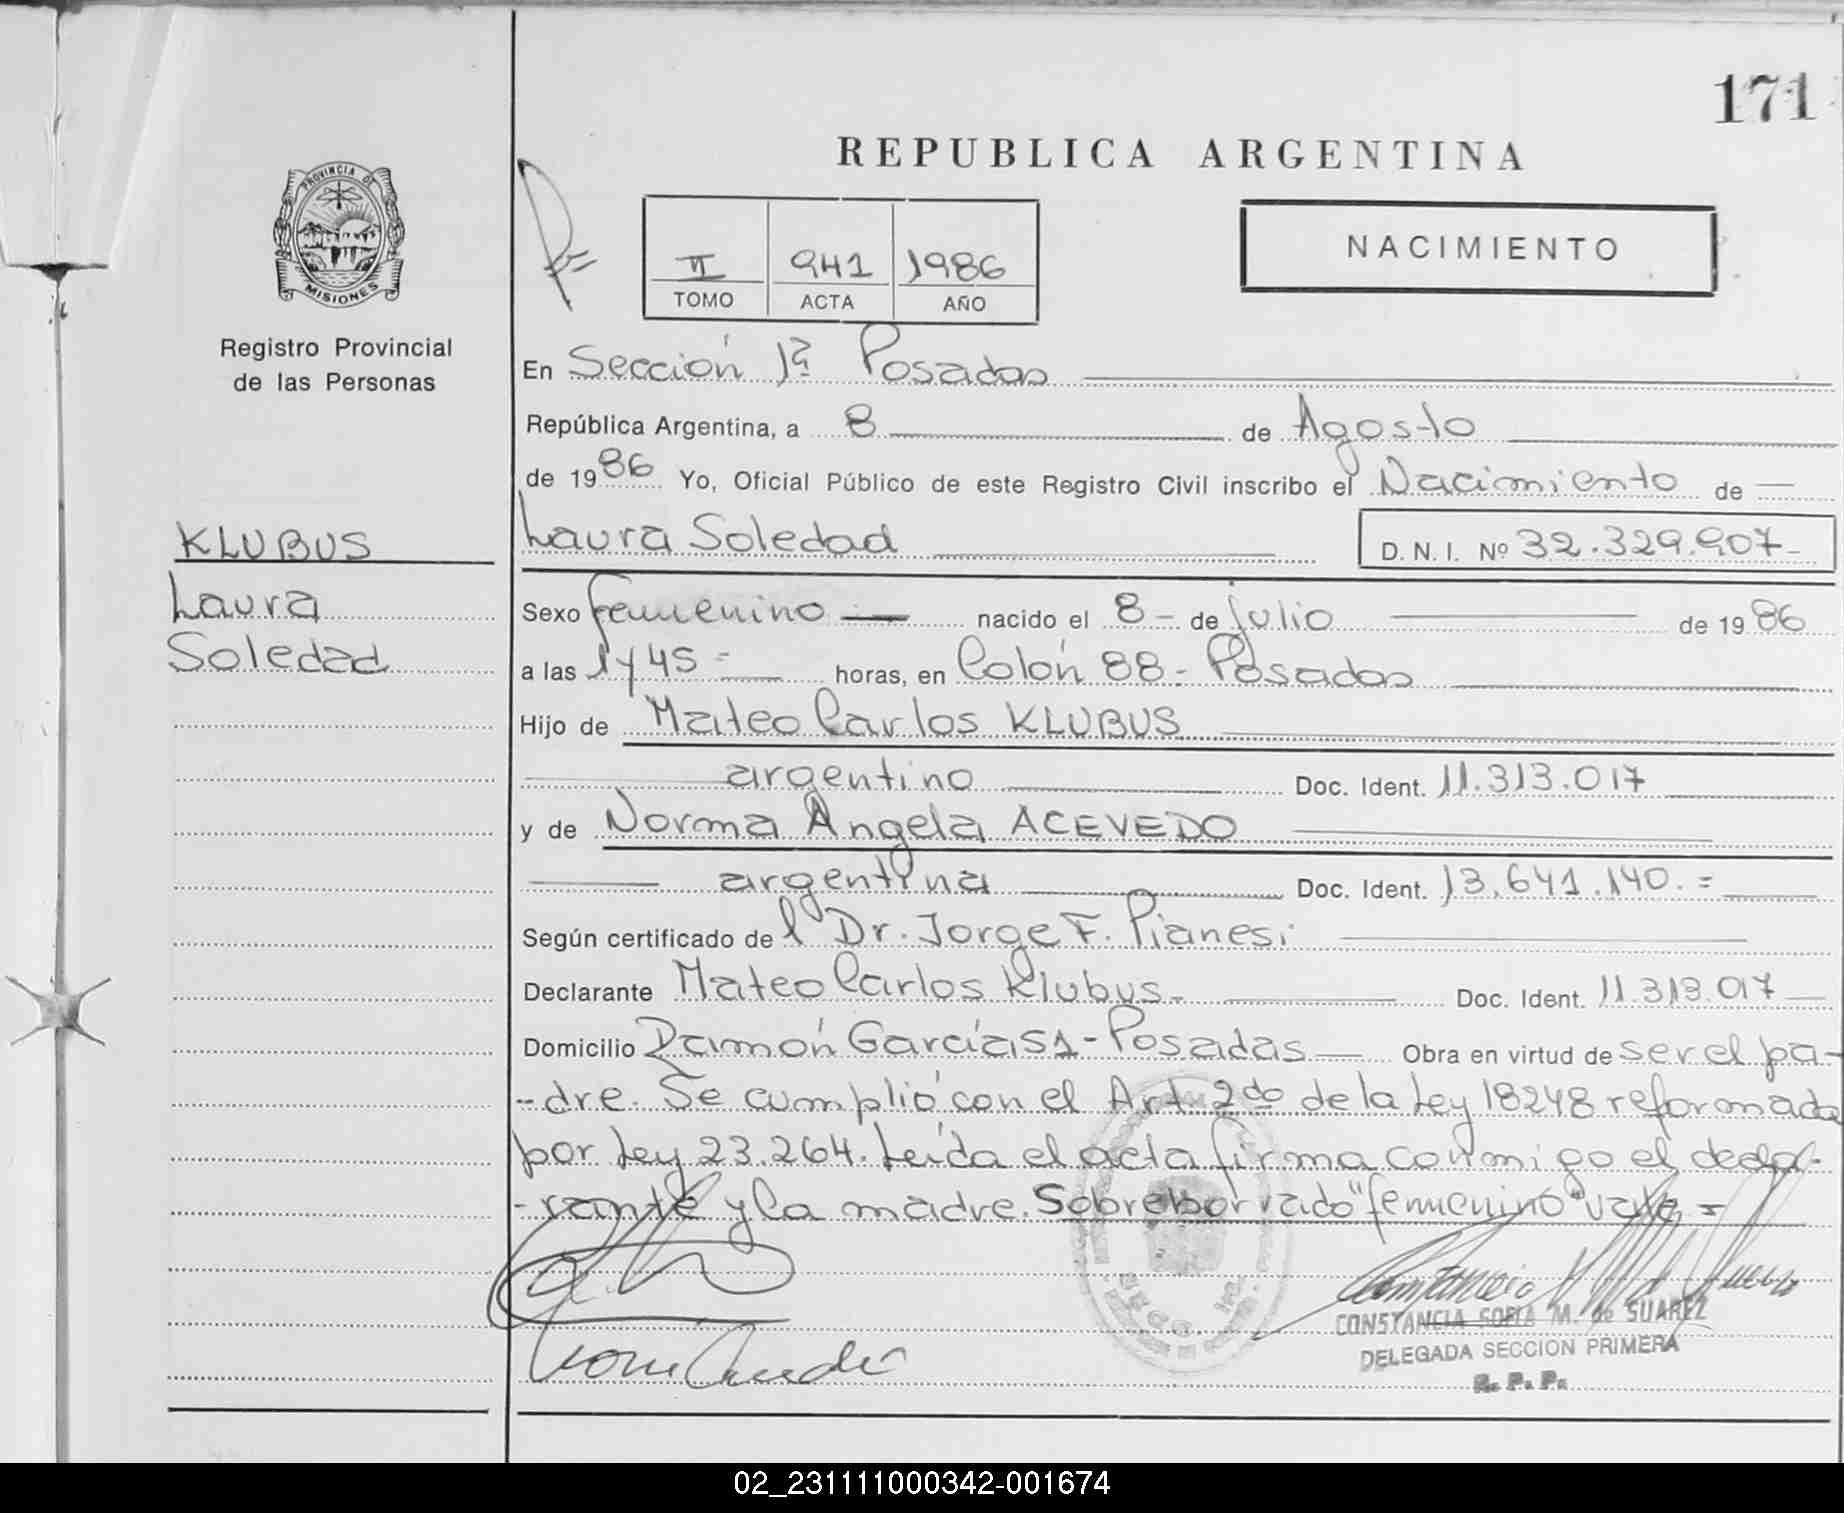 171
REPUBLICA ARGENTINA
PROVINCIA DE
MISIONES
Registro Provincial
de las Personas
II 941 1986
TOMO ACTA AÑO
NACIMIENTO
En Sección 1ª Posadas
República Argentina, a 8 de Agosto
de 1986 Yo, Oficial Público de este Registro Civil inscribo el Nacimiento de
KLUBUS
Laura
Soledad
Laura Soledad D. N. I. Nº 32.329.907-
Sexo femenino nacido el 8 - de julio de 1986
a las 1 y 45 = horas, en Colón 88 - Posadas
Hijo de Mateo Carlos KLUBUS
argentino Doc. Ident. 11.313.017
y de Norma Angela ACEVEDO
argentina Doc. Ident. 13.641.140.=
Según certificado del Dr. Jorge F. Pianesi
Declarante Mateo Carlos Klubus- Doc. Ident. 11.313.017
Domicilio Ramón García 51 - Posadas Obra en virtud de ser el pa-
-dre. Se cumplió con el Art. 2do de la Ley 18248 reformada
por Ley 23.264. Leída el acta firma conmigo el decla-
-rante y la madre. Sobreborrado "femenino" vale =
CONSTANCIA SOFIA M. de SUAREZ
DELEGADA SECCION PRIMERA
R. P. P.
02_231111000342-001674